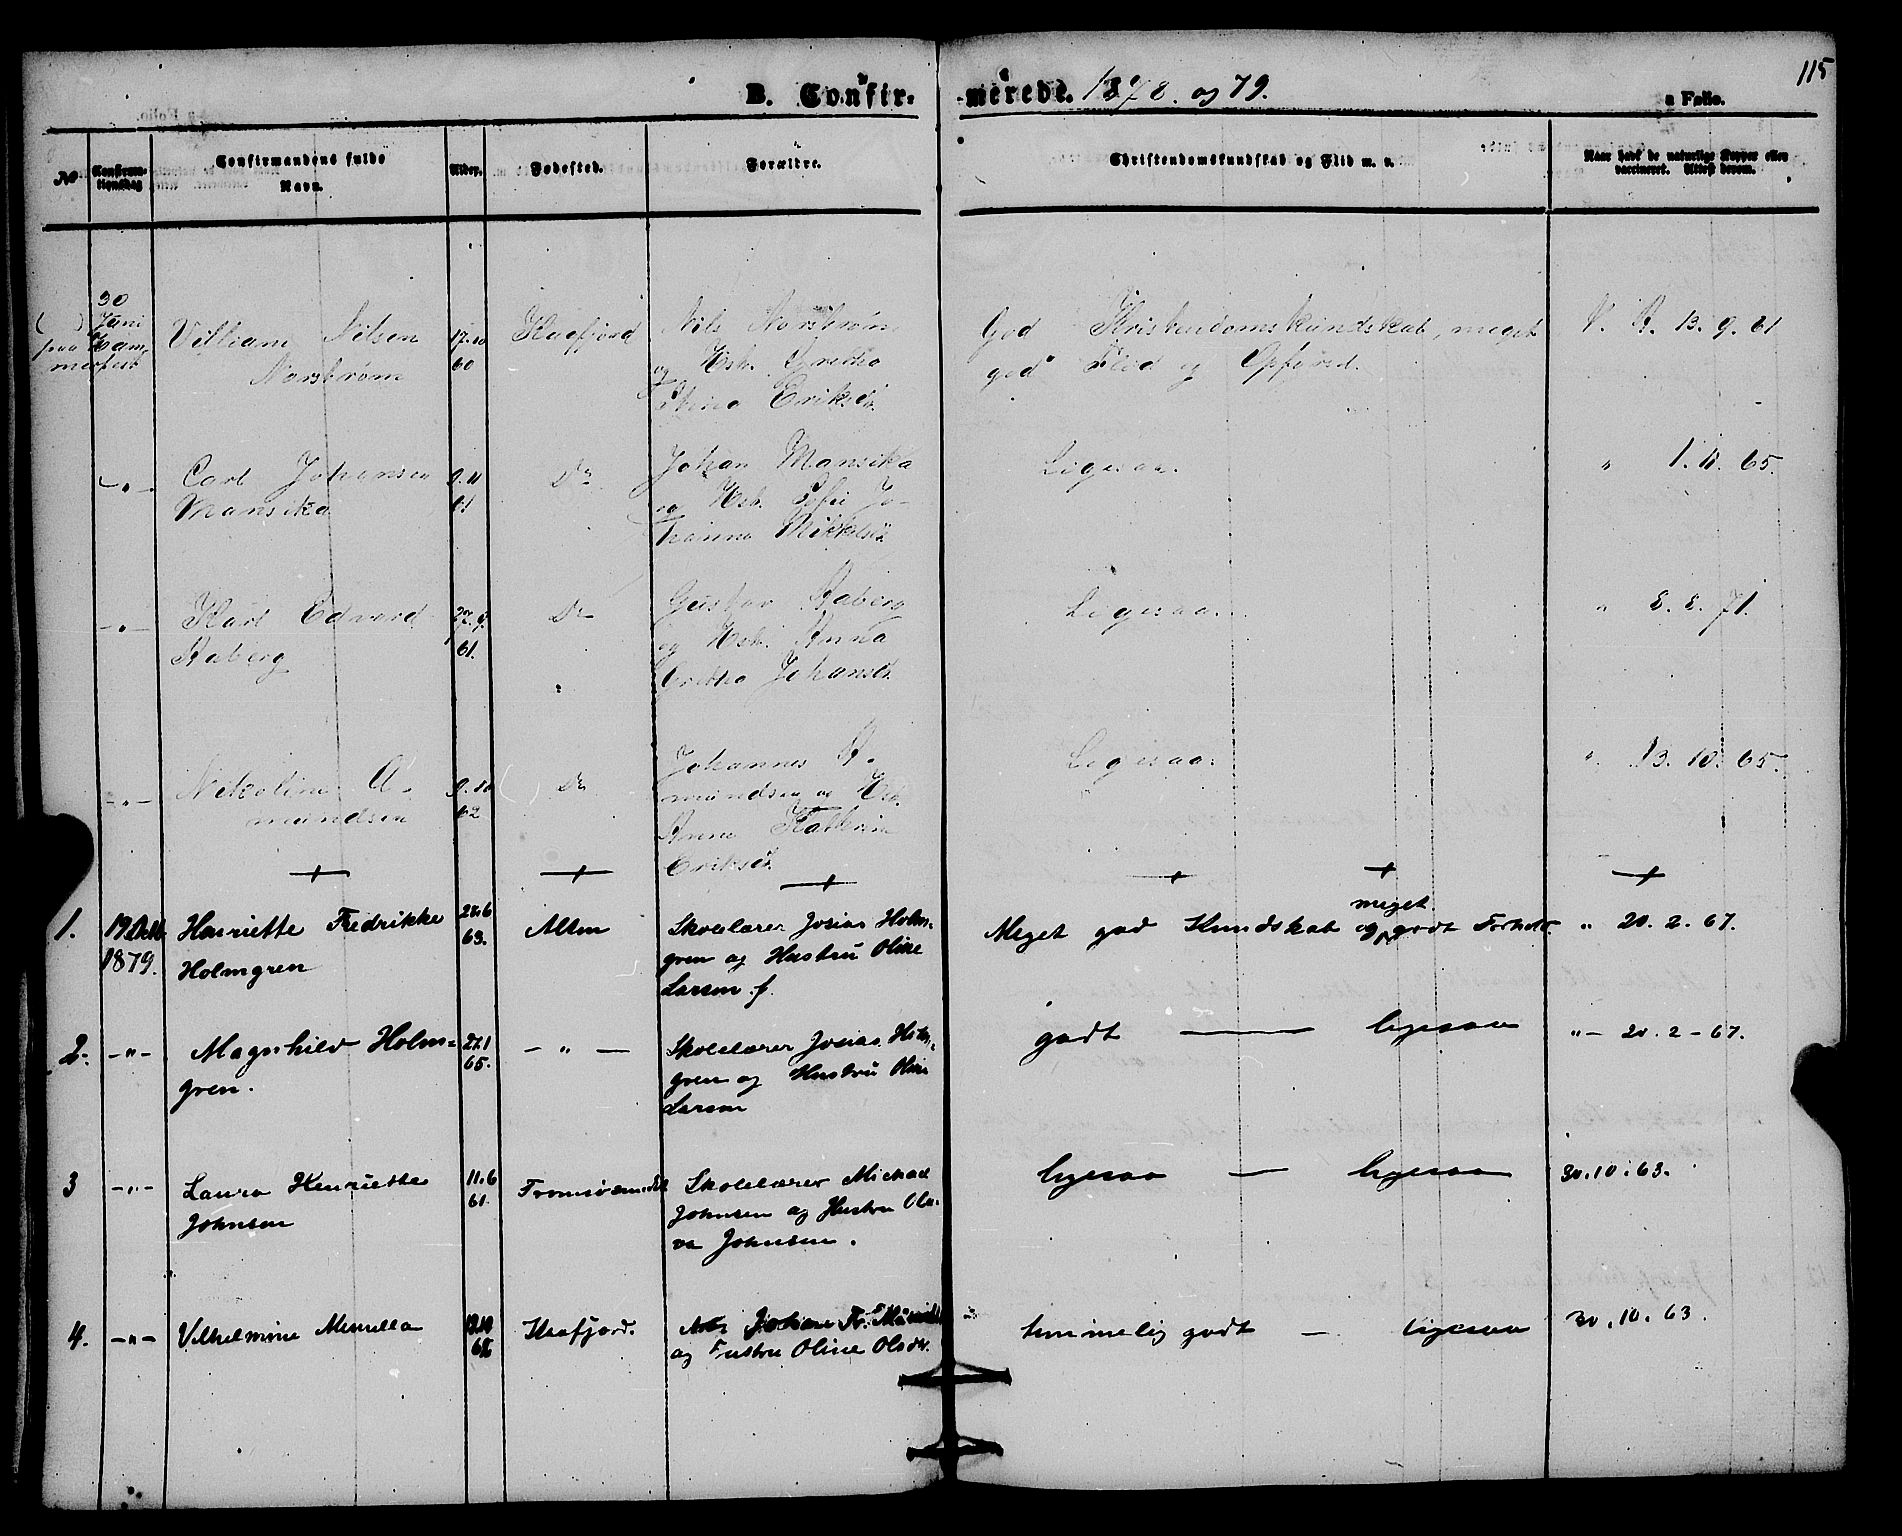 115
B. Confir- merede. 1878. og 79.
a Folio.
No
Confirma-
tionsdag
Confirmandens fulde
Navn.
Alder.
Fødested.
Forældre.
Christendomskundskab og Flid m. v.
Naar havt de naturlige Kopper eller
vaccineret. Attest derom.
30 Juni
paa Ham-
merfest
Villiam Nilsen
Norstrøm
17.10
60
Kaafjord
Nils Norstrøm
og Hst. Gretha
Stina Eriksd.
God Kristendomskundskab, meget
god Flid og Opførsel.
V. A. 13. 9. 61
-„-
Carl Johansen
Mansika
9.11
61
Do
Johan Mansika
og Hst. Sofie Jo-
hanna Mikkelsd.
Ligesaa.
„ 1. 11. 65.
-„-
Karl Edvard
Aaberg
27.9.
61.
Do
Gustav Aaberg
og Hst. Anna
Gretha Johansd.
Ligesaa.
„ 8. 8. 71.
-„-
Nikoline A-
mundsen
9.10
62
Do
Johannes A-
mundsen og Hst.
Anna Kathrine
Eriksd.
Ligesaa.
„ 13. 10. 65.
1. 19 Octb.
1879.
Henriette Fredrikke
Holmgren
28.6
63.
Alten
Skolelærer Josias Holm-
gren og Hustru Oline
Larsen f.
Meget god Kundskab og meget godt Forhold.
„ 20. 2. 67.
2. -„-
Magnhild Holm-
gren.
27.1
65.
- „ -
Skolelærer Josias Holm-
gren og Hustru Oline
Larsen
godt — ligesaa
„- 20. 2 - 67.
3 -„-
Laura Henriette
Johnsen
11.6
61.
Tromsøsundet
Skolelærer Michael
Johnsen og Hustru Ola-
va Johnsen.
ligesaa — ligesaa
30. 10. 63.
4. -„-
Vilhelmine
Kaafjord.
Johan Fr.
og Hustru Oline Olsdr.
temmelig godt — ligesaa
30. 10. 63.